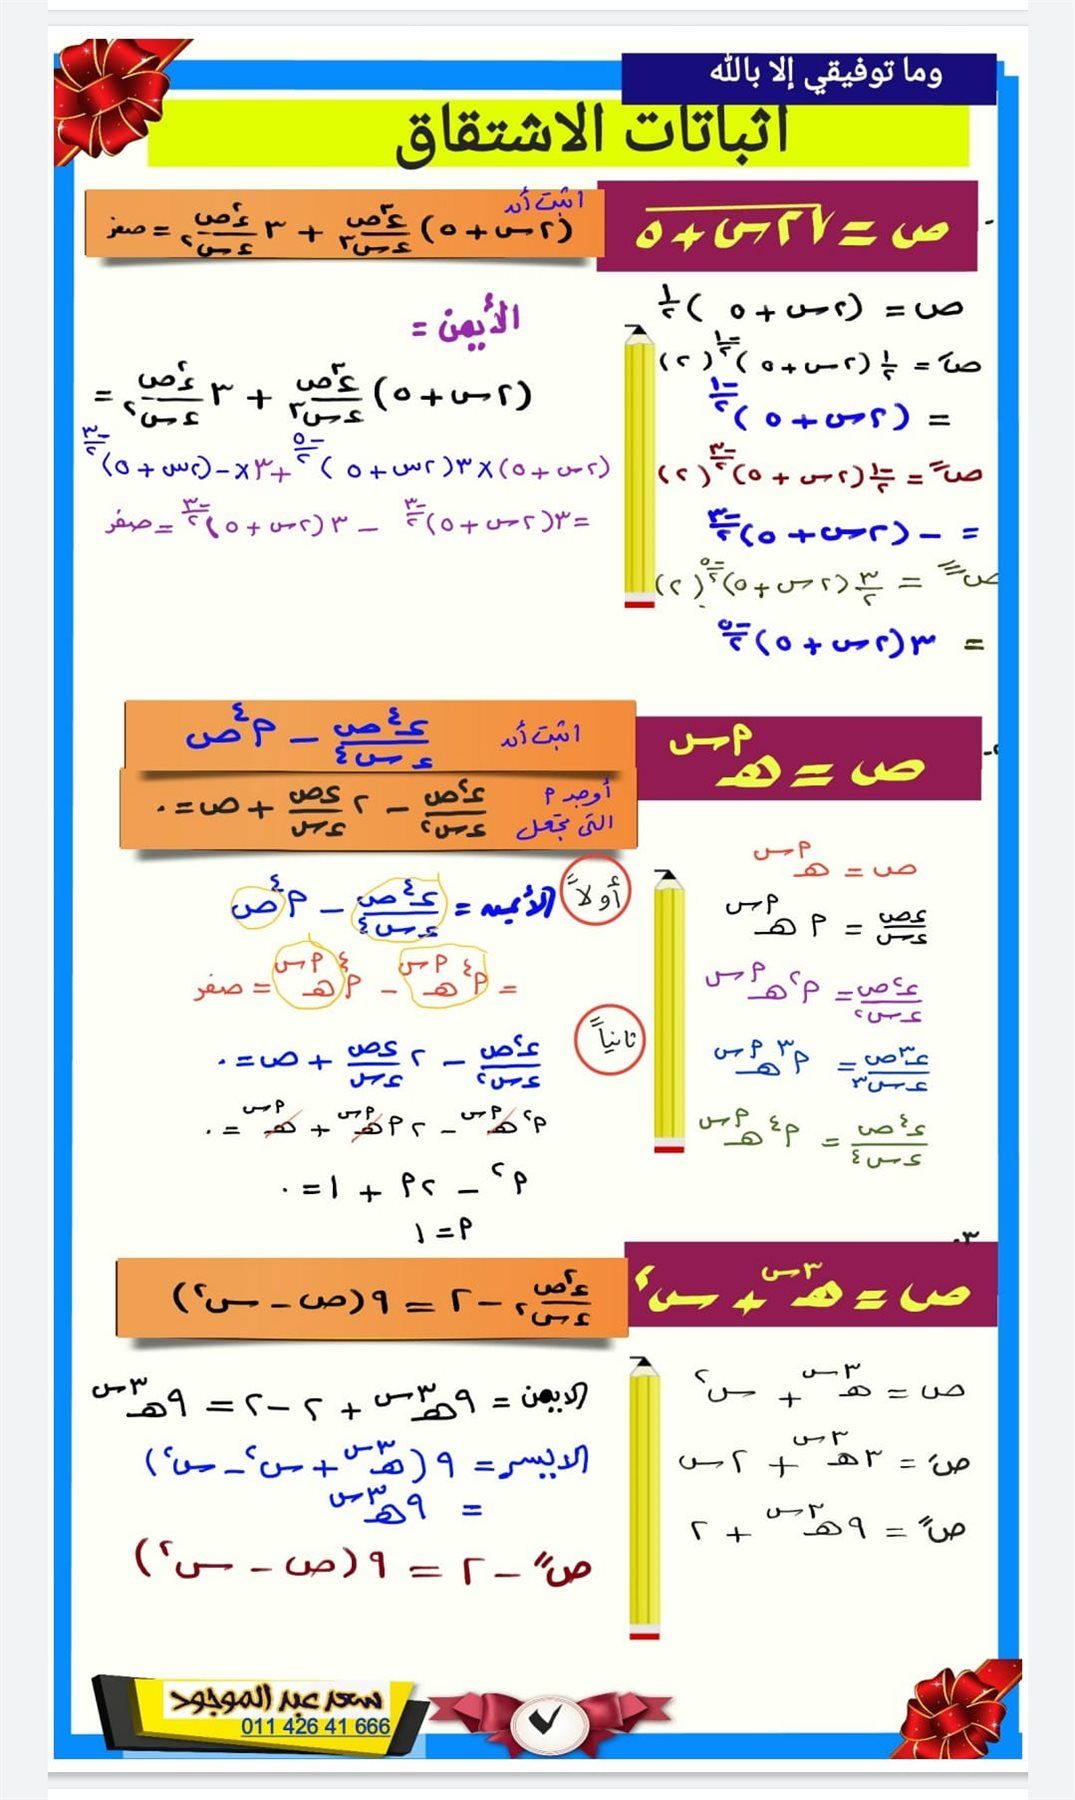 وما توفيقي إلا بالله
اثباتات الاشتقاق
ص = √(٢س + ٥)
اثبت أن
(٢س + ٥) ء³ص/ءس³ + ٣ ء²ص/ءس² = صفر
ص = (٢س + ٥)^(١/٢)
صَ = ١/٢ (٢س + ٥)^(-١/٢) (٢)
= (٢س + ٥)^(-١/٢)
صً = -١/٢ (٢س + ٥)^(-٣/٢) (٢)
= - (٢س + ٥)^(-٣/٢)
ص''' = ٣/٢ (٢س + ٥)^(-٥/٢) (٢)
= ٣(٢س + ٥)^(-٥/٢)
الأيمن =
(٢س + ٥) ء³ص/ءس³ + ٣ ء²ص/ءس² =
(٢س + ٥) × ٣(٢س + ٥)^(-٥/٢) + ٣ × -(٢س + ٥)^(-٣/٢)
= ٣(٢س + ٥)^(-٣/٢) - ٣(٢س + ٥)^(-٣/٢) = صفر
٢-
ص = هـ^(م س)
اثبت أن ء⁴ص/ءس⁴ - م⁴ص
أوجد م
التى تجعل
ء²ص/ءس² - ٢ ءص/ءس + ص = ٠
ص = هـ^(م س)
ءص/ءس = م هـ^(م س)
ء²ص/ءس² = م² هـ^(م س)
ء³ص/ءس³ = م³ هـ^(م س)
ء⁴ص/ءس⁴ = م⁴ هـ^(م س)
أولاً
الأيمن = ء⁴ص/ءس⁴ - م⁴ص
= م⁴ هـ^(م س) - م⁴ هـ^(م س) = صفر
ثانياً
ء²ص/ءس² - ٢ ءص/ءس + ص = ٠
م² هـ^(م س) - ٢م هـ^(م س) + هـ^(م س) = ٠
م² - ٢م + ١ = ٠
م = ١
٣-
ص = هـ^(٣س) + س²
ء²ص/ءس² - ٢ = ٩(ص - س²)
ص = هـ^(٣س) + س²
صَ = ٣هـ^(٣س) + ٢س
صً = ٩هـ^(٣س) + ٢
الايمن = ٩هـ^(٣س) + ٢ - ٢ = ٩هـ^(٣س)
الايسر = ٩(هـ^(٣س) + س² - س²)
= ٩هـ^(٣س)
صً - ٢ = ٩(ص - س²)
سعد عبد الموجود
011 426 41 666